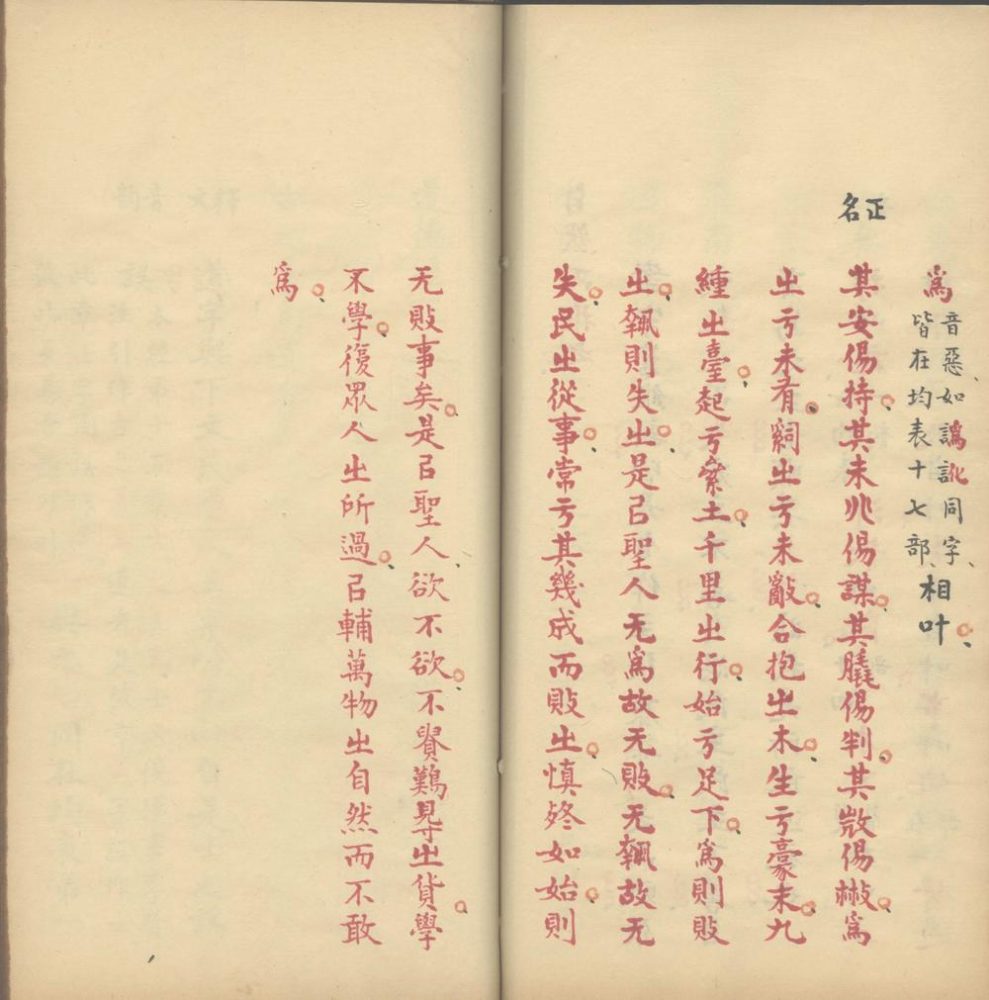 正名
爲
音惡如譌訛同字
皆在均表十七部
相叶
其安偒持其未兆偒謀其膬偒判其㪚偒㭊爲
出亏未有𤔲出亏未𢿢合抱出木生亏豪末九
緟出臺起亏絫土千里出行始亏足下爲則敗
出瓡則失出是㠯聖人无爲故无敗无瓡故无
失民出從事常亏其幾成而敗出慎㱙如始則
无敗事矣是㠯聖人欲不欲不貴難㝵出貨學
不學復眾人出所過㠯輔萬物出自然而不敢
爲